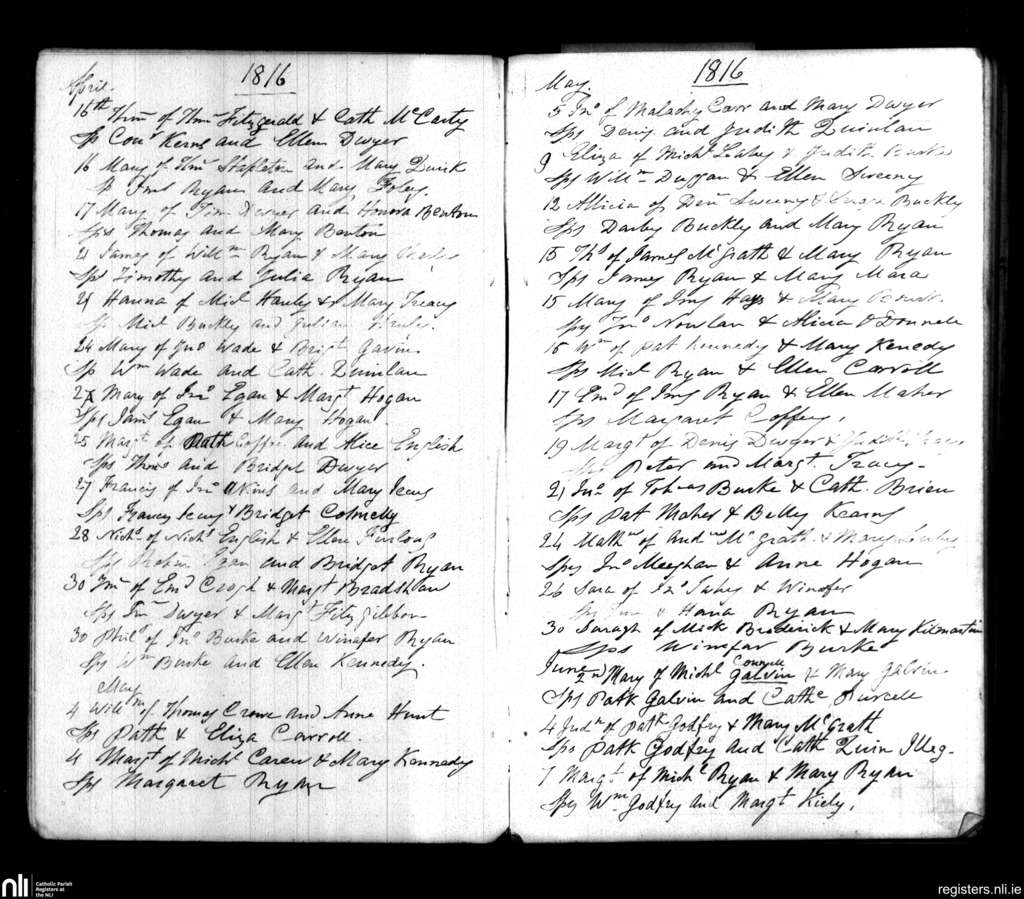 1816
April.
16th Thos of Thos Fitzgerald & Cath McCarty
Sps Con Kerns and Ellen Dwyer
16 Mary of Tim Stapleton and Mary Quirk
Sp Ryan and Mary Foley.
17 Mary of Tim and Honora Benton
Sps Thomas and Mary Benton
21 James of Willm Ryan & Mary
Sps Timothy and Julia Ryan
21 Hanna of Mic Hanly & Mary Treacy
Sps Mic Buckley and Julian
24 Mary of Jno Wade & Brigt Gavin
Sp Wm Wade and Cath. Quinlan
27 Mary of Jno Egan & Margt Hogan
Sps Jams Egan & Mary Hogan
25 Margt of Path and Alice English
Sps Thos and Bridget Dwyer
27 Francis of Jno and Mary
Sps Francis & Bridget Connelly
28 Nichs of Nichs English & Ellen Furlong
Sps Egan and Bridget Ryan
30 of Emd Crogh & Margt Bradshaw
Sps Dwyer & Margt Fitzgibbon
30 Phil of Jno Burke and Winafer Ryan
Sps Wm Burke and Ellen Kennedy.
May
4 Willm of Thomas Crowe and Anne Hunt
Sps Patk & Eliza Carroll.
4 Margt of Michl Caren & Mary Kennedy
Sps Margaret Ryan
1816
May
5 Jno of Malachy Carr and Mary Dwyer
Sps Denis and Judith Quinlan
9 Eliza of Michl Lahey & Judith
Sps Willm Duggan & Ellen Sweeny
12 Allicia of Den Sweeny & Buckley
Sps Darby Buckley and Mary Ryan
15 Ths of James McGrath & Mary Ryan
Sps James Ryan & Mary Mara
15 Mary of Jmy Hays & Mary
Sps Jno Nowlan & Alicia O Donnell
15 Wm of Pat Kennedy & Mary Kenedy
Sps Mic Ryan & Ellen Carroll
17 Emd of Jmy Ryan & Ellen Maher
Sps Margaret Coffey.
19 Margt of Denis Dwyer & Judith
Sps Peter and Margt. Tracy
21 Jno of Tobias Burke & Cath. Brien
Sps Pat Maher & Betty Kearns
24 Mathw of Andw McGrath & Mary
Sps Jno Meeghan & Anne Hogan
26 Sara of Jno Lahey & Winafer
Sps & Hana Ryan
30 Saragh of Mick Broderick & Mary Kilmartin
Sps Winefar Burke
June
2nd Mary of Michl Connell Galvin & Mary Galvin
Sps Patk Galvin and Cathe Purcell
4 Judh of Patk Godfry & Mary McGrath
Sps Patk Godfry and Cath Quin Illeg.
7 Margt of Michl Ryan & Mary Ryan
Sps Wm Godfry and Margt Kiely.
nli
Catholic Parish
Registers at
the NLI
registers.nli.ie